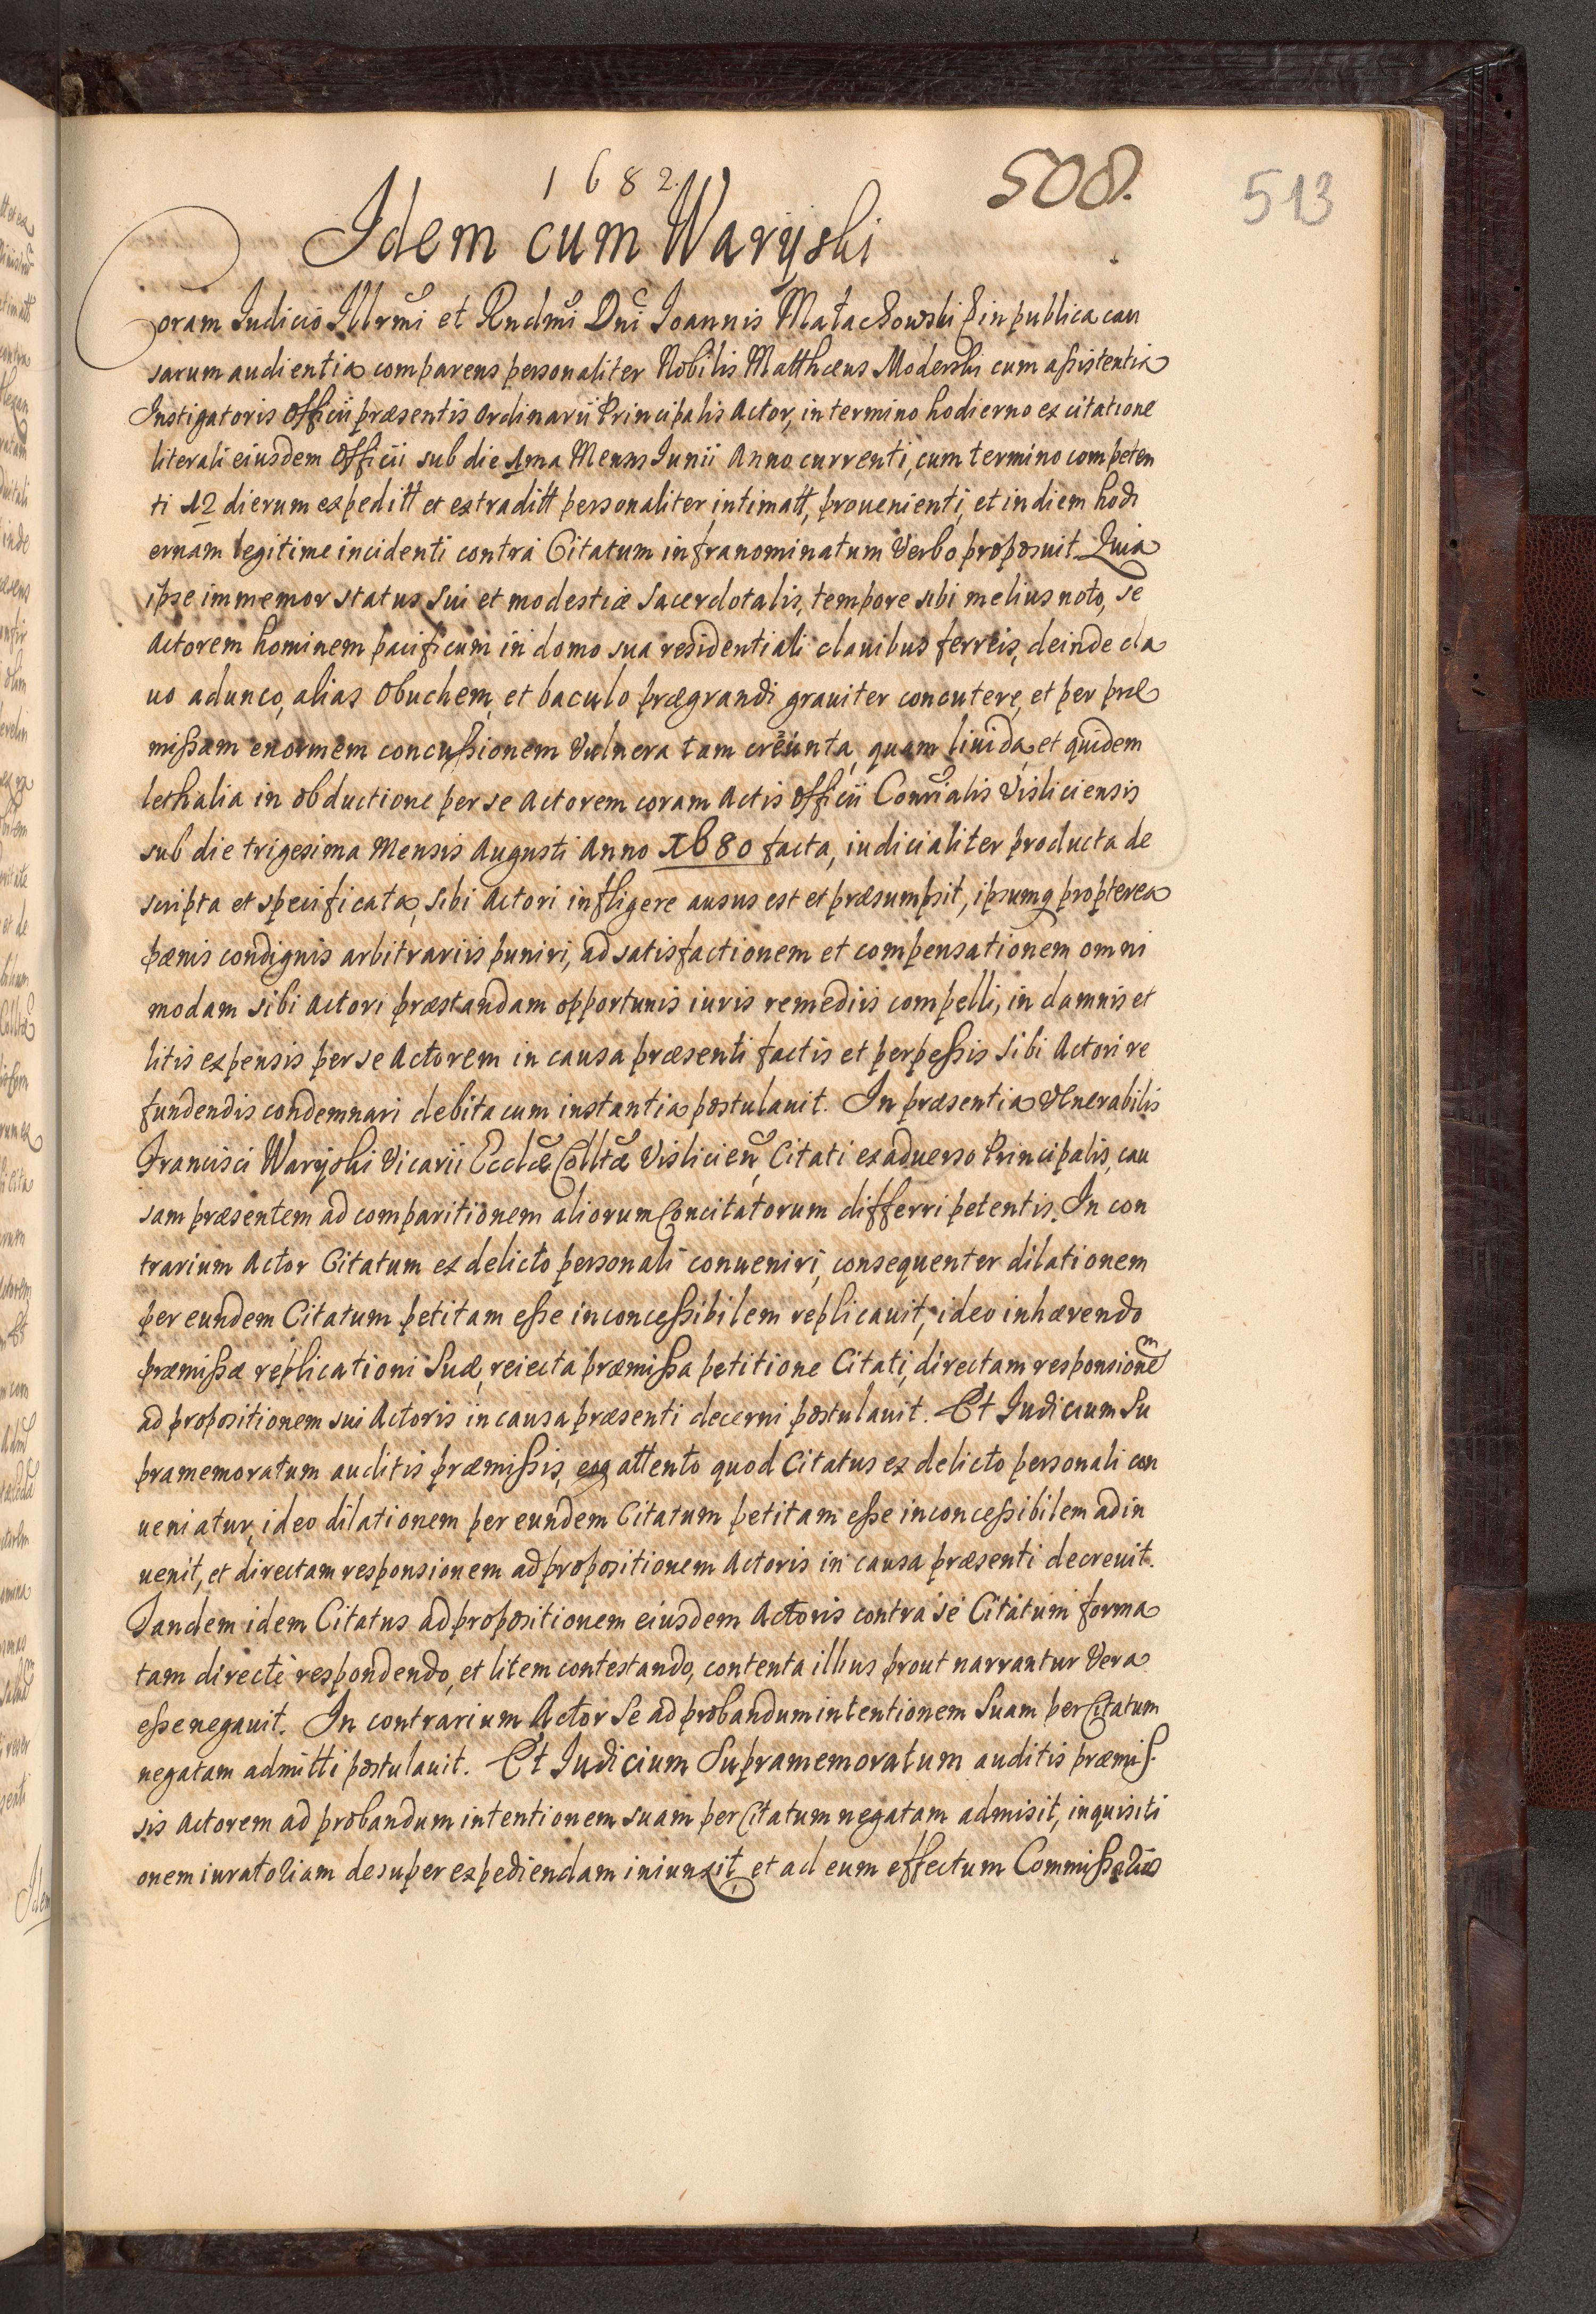 1682.
508.
513
Idem cum Waryski
Coram Iudicio Illrmi et Rndmi Dni Ioannis Małachowski E in publica cau
sarum audientia comparens personaliter Nobilis Matthæus Moderski cum assistentia
Instigatoris Officii præsentis Ordinarii Principalis Actor, in termino hodierno ex citatione
literali eiusdem Officii sub die 1ma Mensis Iunii Anno currenti, cum termino competen
ti 12 dierum expeditt et extraditt personaliter intimatt, prouenienti, et in diem hodi
ernam legitime incidenti contra Citatum infranominatum Verbo proposuit. Quia
ipse immemor status sui et modestiæ sacerdotalis, tempore sibi melius noto, se
Actorem hominem pacificum in domo sua residentiali clauibus ferreis, deinde cla
uo adunco, alias Obuchem, et baculo prægrandi grauiter concutere, et per præ
missam enormem concussionem Vulnera tam creunta, quam liuida, et quidem
lethalia in obductione per se Actorem coram Actis Officii Conrialis Visliciensis
sub die trigesima Mensis Augusti Anno 1680 facta, iudicialiter producta de
scripta et specificata, sibi Actori infligere ausus est et præsumpsit, ipsumq propterea
pænis condignis arbitrariis puniri, ad satisfactionem et compensationem omni
modam sibi Actori præstandam opportunis iuris remediis compelli, in damnis et
litis expensis per se Actorem in causa præsenti factis et perpessis sibi Actori re
fundendis condemnari debita cum instantia postulauit. In præsentia Vlnerabilis
Francisci Waryski Vicarii Ecclæ Colltæ Vislicien, Citati ex aduerso Principalis, cau
sam præsentem ad comparitionem aliorum Concitatorum differri petentis. In con
trarium Actor Citatum ex delicto personali conueniri, consequenter dilationem
per eundem Citatum petitam esse inconcessibilem replicauit, ideo inhærendo
præmissæ replicationi suæ, reiecta præmissa petitione Citati, directam responsionem
ad propositionem sui Actoris in causa præsenti decerni postulauit. Et Iudicium Su
pramemoratum auditis præmissis, eoq attento quod Citatus ex delicto personali con
ueniatur, ideo dilationem per eundem Citatum petitam esse inconcessibilem adin
uenit, et directam responsionem ad propositionem Actoris in causa præsenti decreuit.
Tandem idem Citatus ad propositionem eiusdem Actoris contra se Citatum forma
tam directe respondendo, et litem contestando, contenta illius prout narrantur Vera
esse negauit. In contrarium Actor se ad probandum intentionem suam per Citatum
negatam admitti postulauit. Et Iudicium Supramemoratum auditis præmis
sis Actorem ad probandum intentionem suam per Citatum negatam admisit, inquisiti
onem iuratoriam desuper expediendam iniunxit, et ad eum effectum